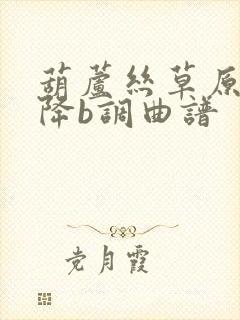 葫蘆絲草原
降b調曲譜
党月霞